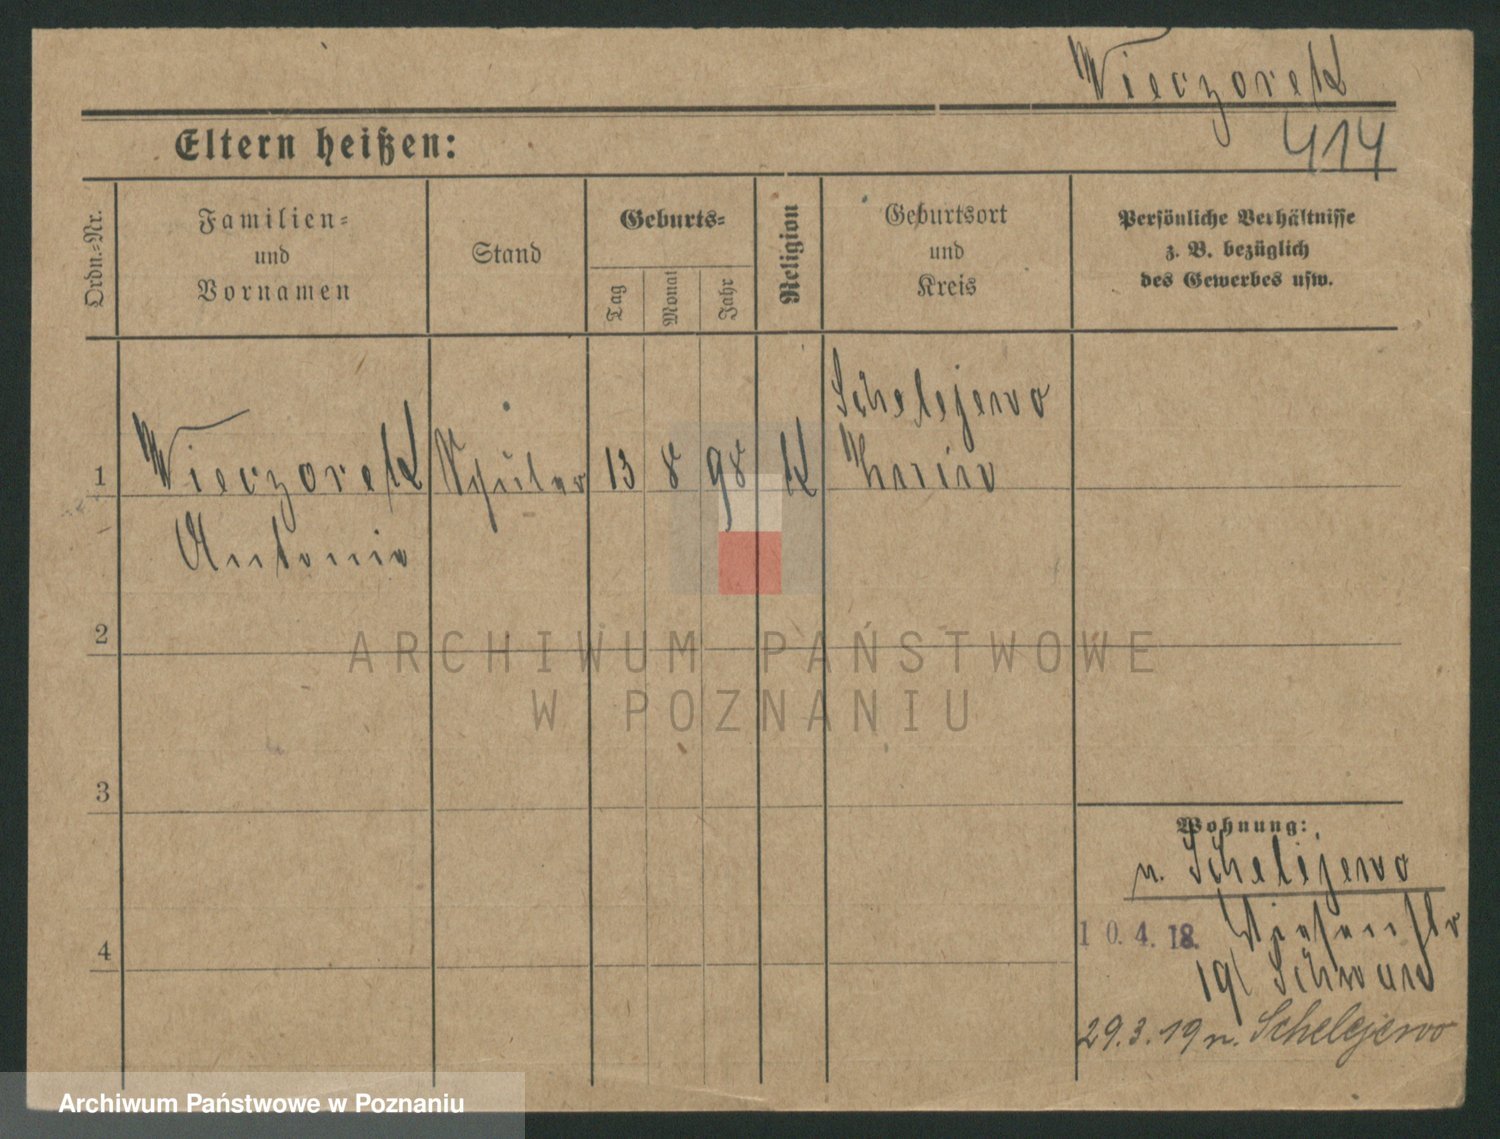 Wieczorek
414
Eltern heißen:
Ordn.-Nr.
Familien-
und
Vornamen
Stand
Geburts-
Tag
Monat
Jahr
Religion
Geburtsort
und
Kreis
Persönliche Verhältnisse
z. B. bezüglich
des Gewerbes usw.
Schelejewo
1 Wieczorek Schüler 13 8 98 K Znin
Antonie
2
3
4
Wohnung:
n. Schelejewo
10.4.18. Wiesenstr
19
29.3.19 n. Schelejewo
ARCHIWUM PAŃSTWOWE
W POZNANIU
Archiwum Państwowe w Poznaniu